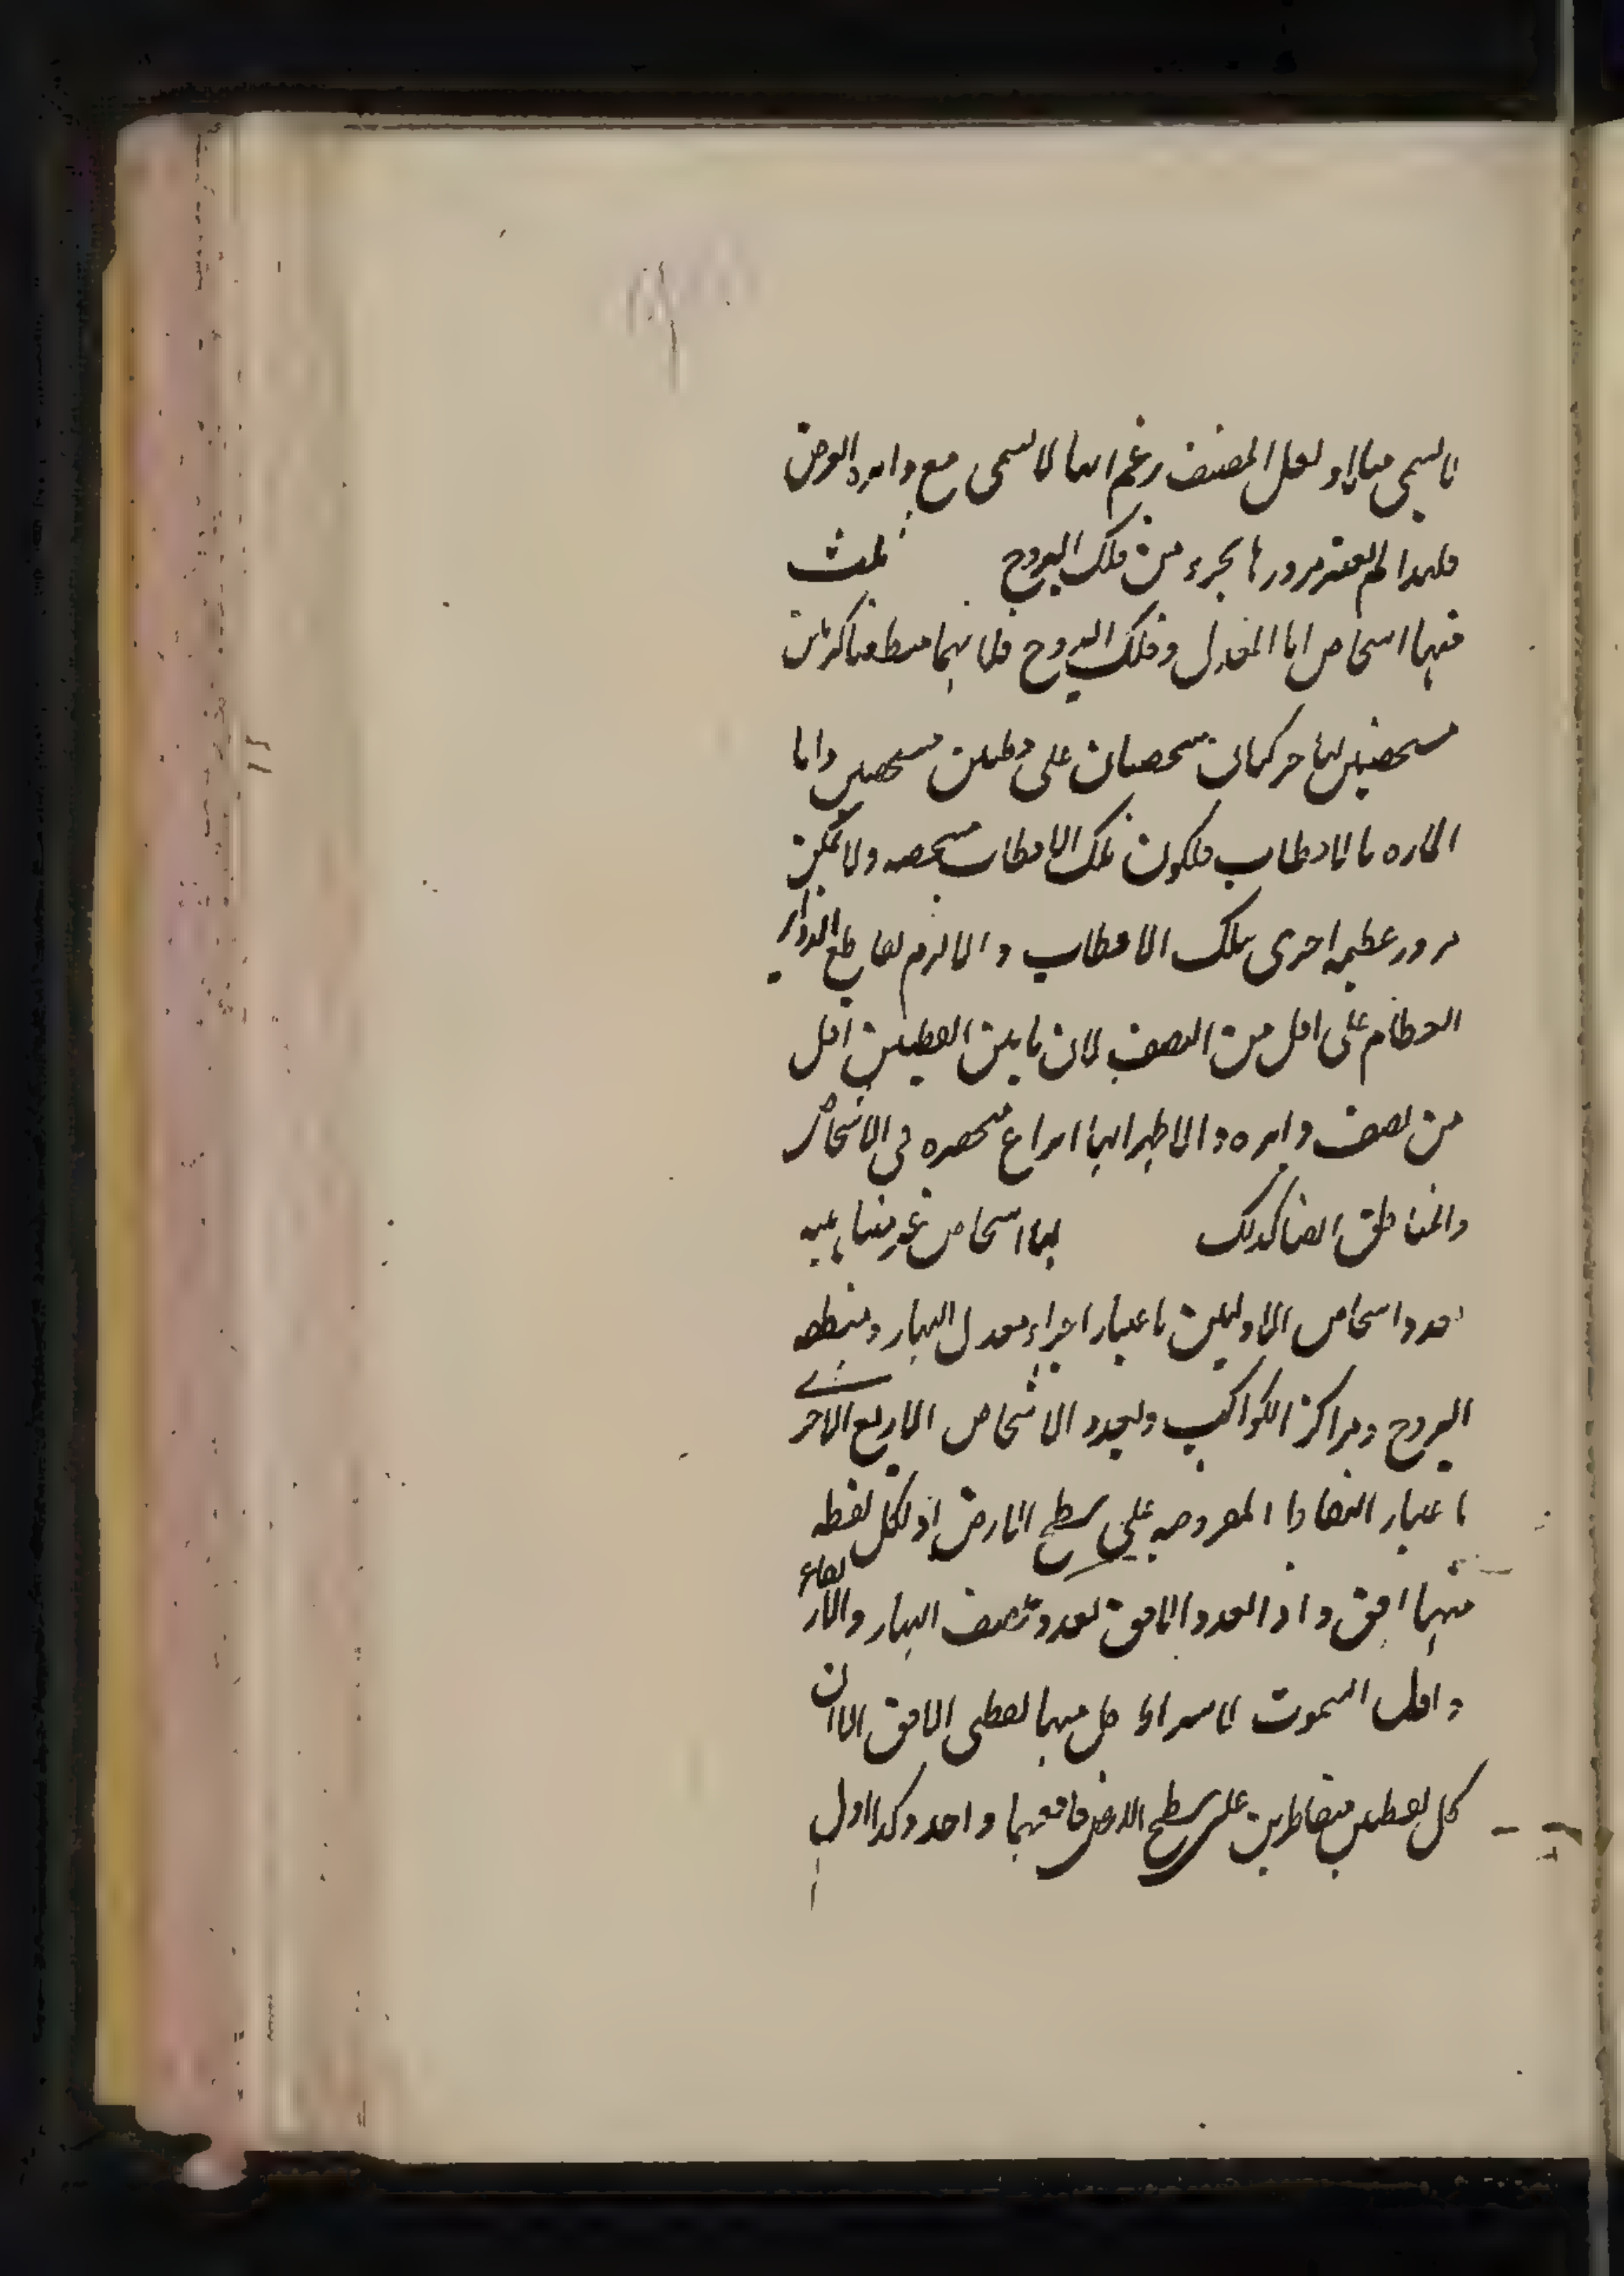 لا يسمى ميلا ولعل المصنف زعم انها لا تسمى مع دايره العرض
فلهذا لم يعتبر مرورها بجزء من فلك البروج ثلث
منها اشخاص اما المعدل وفلك البروج فلانهما منطقتا كرتين
مشخصتين لهما حركتان مشخصتان على قطبين مشخصين واما
الماره بالاقطاب فلكون تلك الاقطاب مشخصه ولا يمكن
مرور عظيمه اخرى بتلك الاقطاب والا لزم تقاطع الدواير
العظام على اقل من النصف لان ما بين القطبين اقل
من نصف دايره والاظهر انها انواع منحصره فى الاشخاص
والمناطق ايضا كذلك لها اشخاص غير متناهيه
تعدد اشخاص الاوليين باعتبار اجزاء معدل النهار ومنطقه
البروج ومراكز الكواكب وتعدد الاشخاص الاربع الاخر
باعتبار النقاط المفروضه على سطح الارض اذ لكل نقطه
منها افق واذا تعدد الافق تعدد نصف النهار والارتفاع
واول السموت لاشتراط كل منها نقطتى الافق الا ان
كل نقطتين متقاطرتين على سطح الارض فافقهما واحد وكذا اول